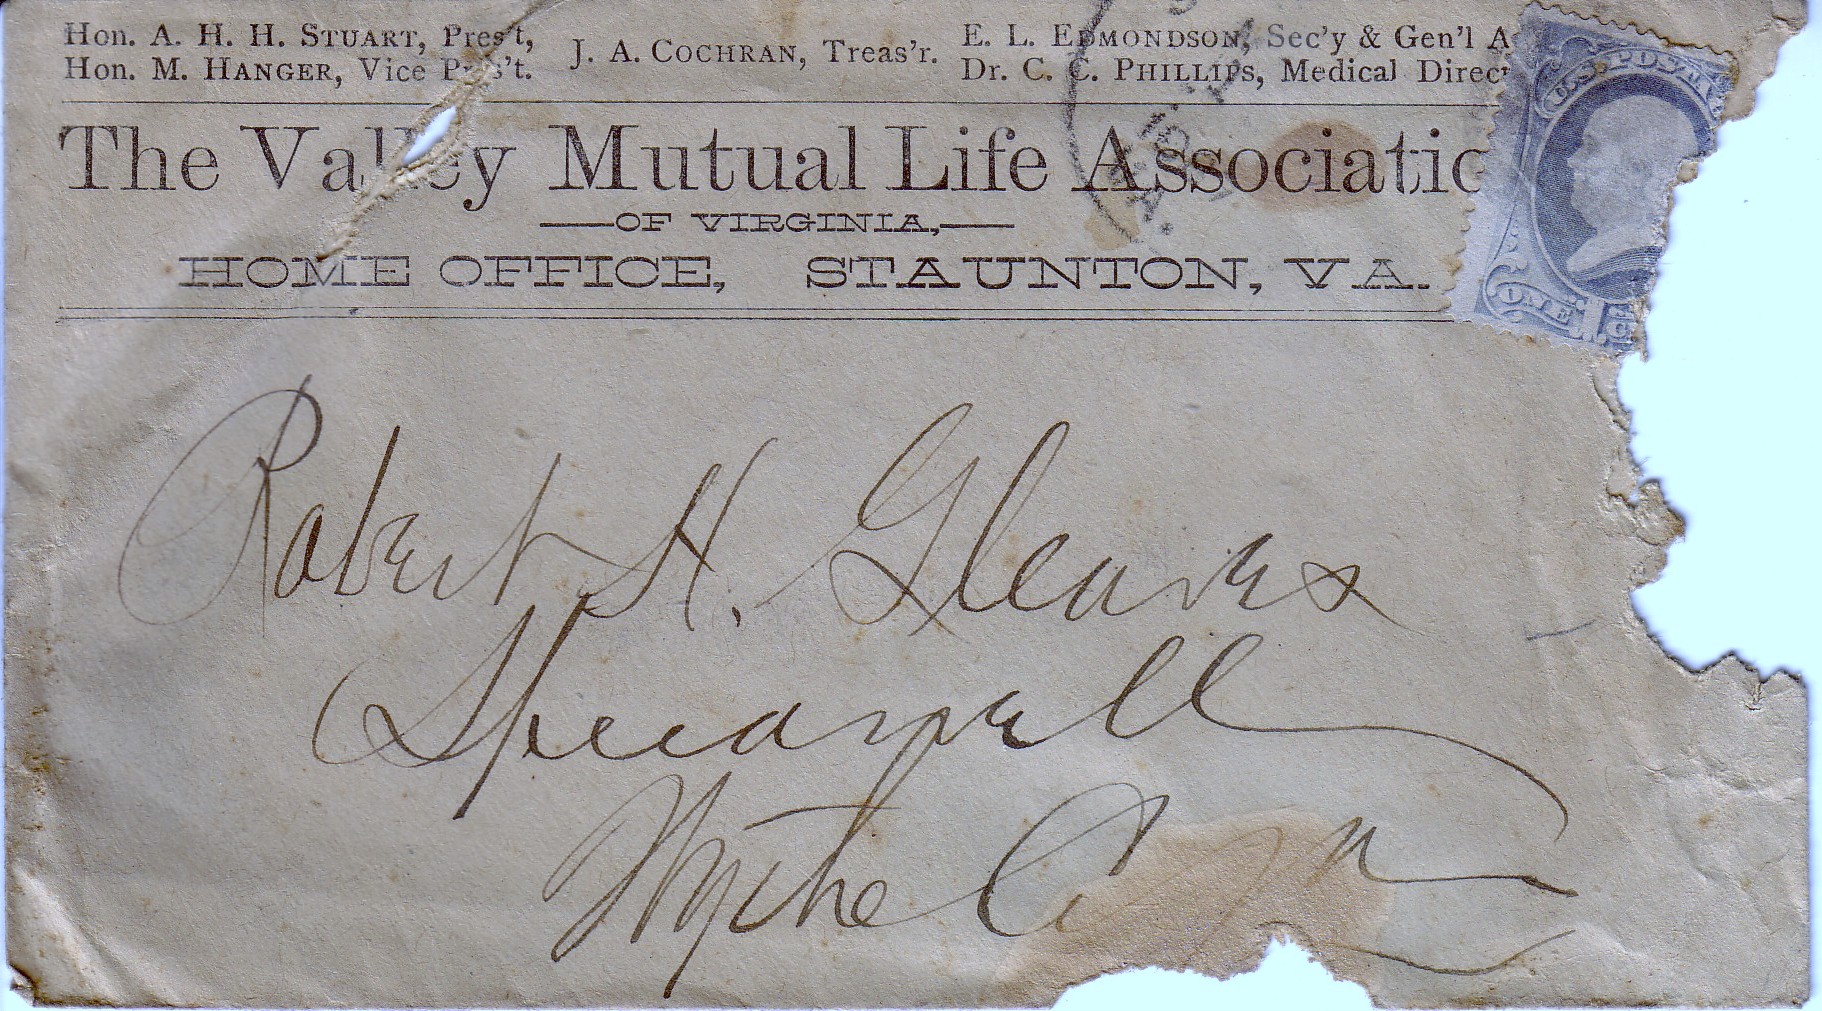 Hon. A. H. H. STUART, Pres't,
Hon. M. HANGER, Vice Pres't.
J. A. COCHRAN, Treas'r.
E. L. EDMONDSON, Sec'y & Gen'l A
Dr. C. C. PHILLIPS, Medical Direc
The Valley Mutual Life Associatio
OF VIRGINIA,
HOME OFFICE, STAUNTON, VA.
U.S. POSTA
ONE 1 C
Robert H. Gleaves
Speedwell
Wythe Co Va